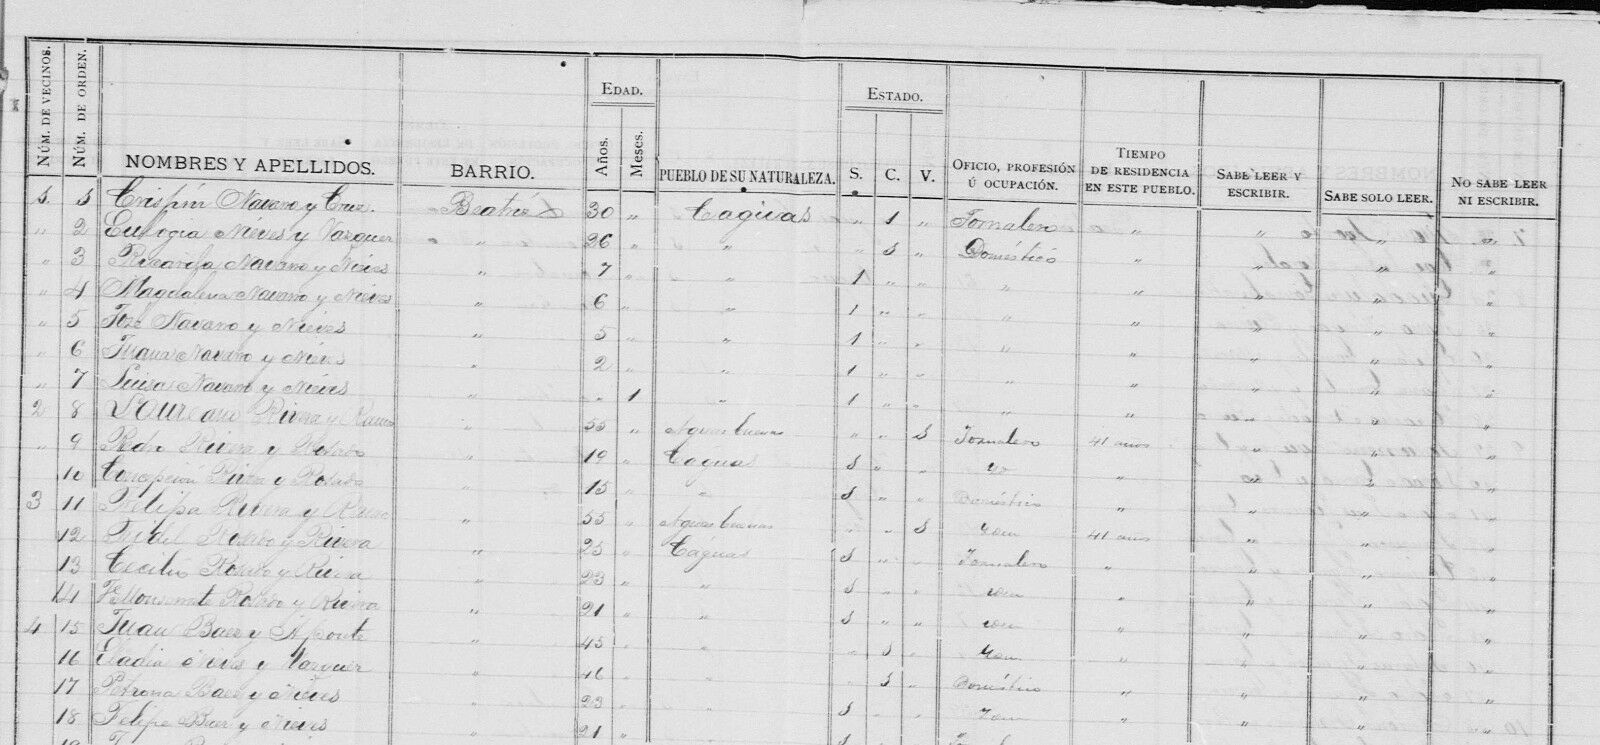 NÚM. DE VECINOS. NÚM. DE ORDEN. NOMBRES Y APELLIDOS. BARRIO. EDAD. Años. Meses. PUEBLO DE SU NATURALEZA. ESTADO. S. C. V. OFICIO, PROFESIÓN Ú OCUPACIÓN. TIEMPO DE RESIDENCIA EN ESTE PUEBLO. SABE LEER Y ESCRIBIR. SABE SOLO LEER. NO SABE LEER NI ESCRIBIR.
1 1 Crispín Navarro y Cruz. Beatriz 30 " Caguas " 1 " Jornalero " " " "
" 2 Eulogia Nieves y Vazquez " 26 " " " 1 " Doméstico " " " "
" 3 Ricarda Navarro y Nieves " 7 " " 1 " " " " " " "
" 4 Magdalena Navarro y Nieves " 6 " " 1 " " " " " " "
" 5 Navarro y Nieves " 5 " " 1 " " " " " " "
" 6 Juana Navarro y Nieves " 2 " " 1 " " " " " " "
" 7 Luisa Navarro y Nieves " " 1 " 1 " " " " " " "
2 8 Laureano Rivera y Ramos " 55 " Aguas buenas " " 1 Jornalero 41 años " " "
" 9 Pedro Rivera y Rosado " 19 " Caguas 1 " " " " " "
10 Concepción Rivera y Rosado " 15 " " 1 " " Doméstico " " " "
3 11 Felipa Rivera y " 55 " Aguas buenas " " 1 41 años " " "
12 Fidel Rosado y Rivera " 25 " Caguas 1 " " Jornalero " " " "
13 Cecilio Rosado y Rivera " 23 " " 1 " " " " " "
14 Monserrate Rosado y Rivera " 21 " " 1 " " " " " "
4 15 Juan Baez y Aponte " 45 " " " 1 " " " " "
16 Eladia Nieves y Vazquez " 46 " " " 1 " Doméstico " " " "
17 Petrona Baez y Nieves " 23 " " 1 " " " " " "
18 Felipe Baez y Nieves " 21 " " 1 " "